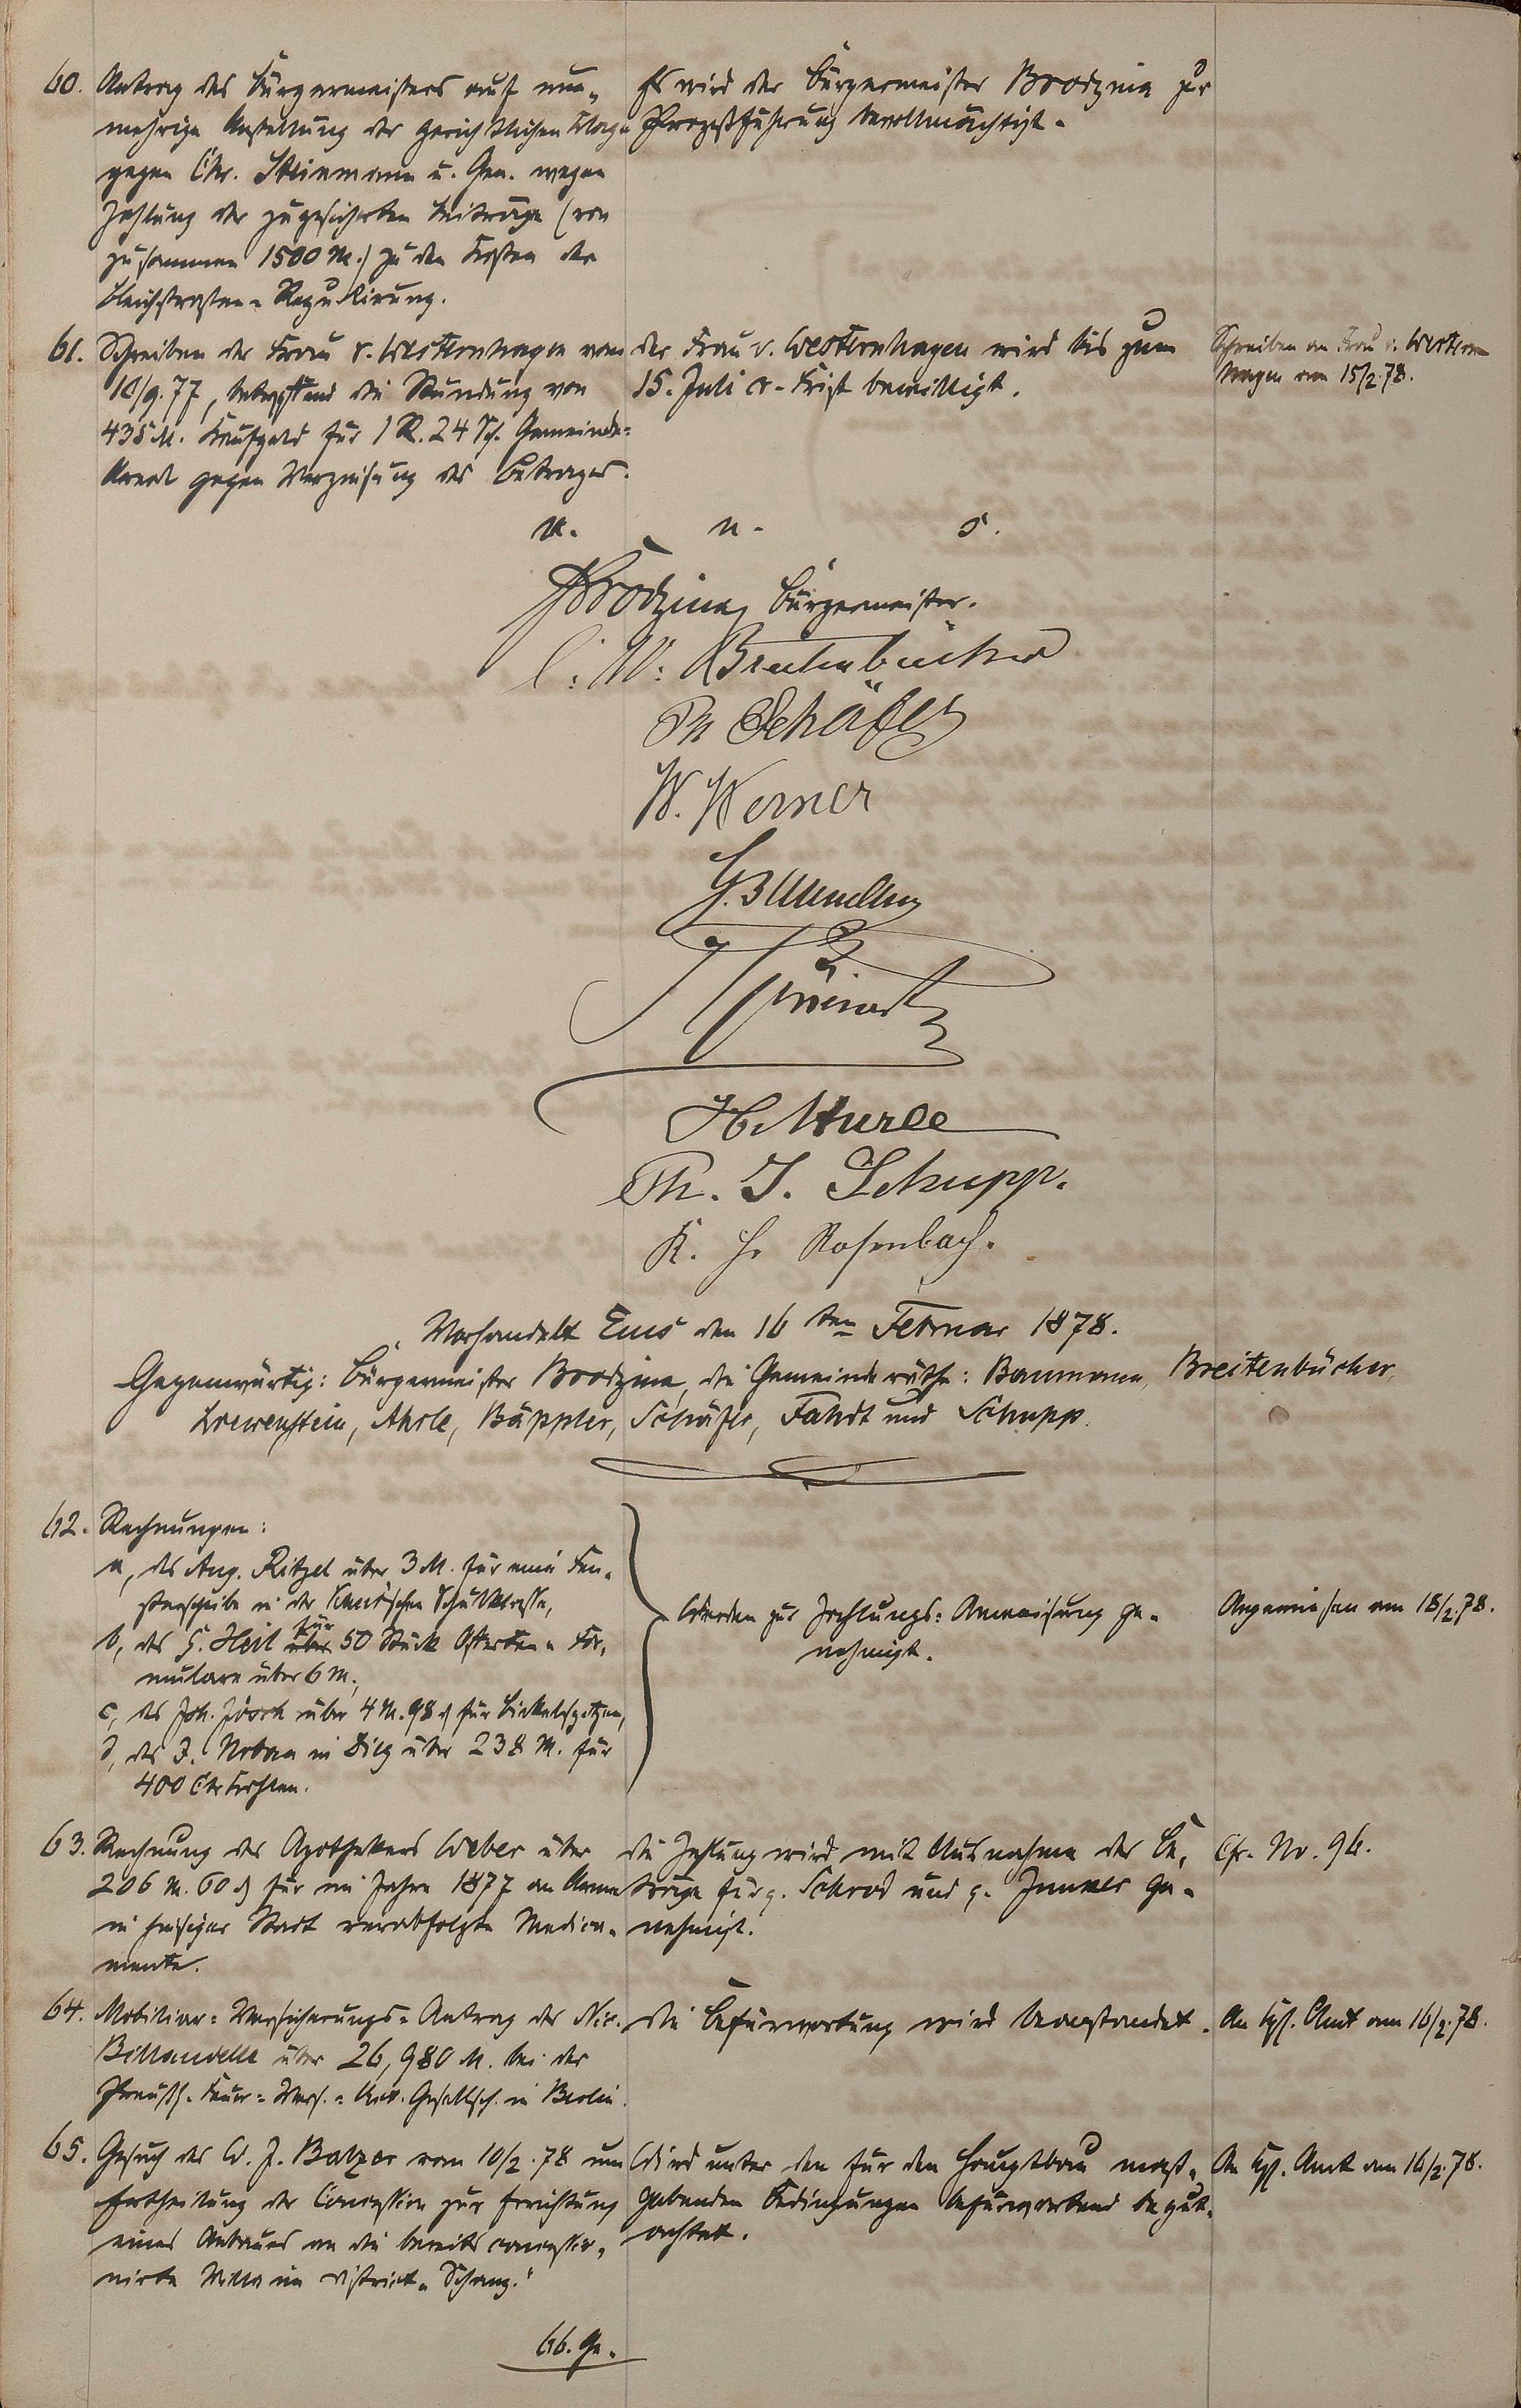 60. Antrag des Bürgermeisters auf nun-
mehrige Anstellung der gerichtlichen Klage
gegen Chr. Steinmann u. Gen. wegen
Zahlung der zugesicherten Beiträge (von
zusammen 1500 M.) zu den Kosten der
Bleichstraßen-Regulirung.
Es wird der Bürgermeister Brodzina zur
Prozeßführung bevollmächtigt.
61. Schreiben der Frau v. Westernhagen vom
10/9. 77, betreffend die Stundung von
435 M. Kaufgeld für 1 R. 24 Sch. Gemeinde-
Areal gegen Verzinsung des Betrages.
Der Frau v. Westernhagen wird bis zum
15. Juli cr. Frist bewilligt.
Schreiben an Frau v. Western
hagen am 15/2. 78.
v. n. s.
Brodzina, Bürgermeister.
C. W. Breitenbücher
Ph Schäfer
W. Werner
H. Ahrle
Ph. J. Schupp.
K. H. Rosenbach.
Verhandelt Ems den 16ten Februar 1878.
Gegenwärtig: Bürgermeister Brodzina, die Gemeinderäthe: Baumann, Breitenbücher,
Loewenstein, Ahrle, Bäppler, Schäfer, Fahdt und Schupp.
62. Rechnungen:
a, des Aug. Ritzel über 3 M. für eine Fen-
sterscheibe in der Knie'schen Schulklasse,
b, des H. Heil für über 50 Stück Offerten-For-
mulare über 6 M.,
c, des Joh. Jörck über 4 M. 98 ₰ für Bickelspitzen,
d, des J. Noban in Diez über 238 M. für
400 Ctr Kohlen.
Werden zur Zahlungs-Anweisung ge-
nehmigt.
Angewiesen am 18/2. 78.
63. Rechnung des Apothekers Weber über
206 M. 60 ₰ für im Jahre 1877 an Arme
in hiesiger Stadt verabfolgte Medica-
mente.
Die Zahlung wird mit Ausnahme der Be-
träge für p. Schrod und p. Junker ge-
nehmigt.
Cfr. No. 96.
64. Mobiliar-Versicherungs-Antrag des Nic.
Billaudelle über 26,980 M. bei der
Preuß. Feuer-Vers.-Act. Gesellsch. in Berlin.
Die Befürwortung wird beanstandet.
An Kgl. Amt am 16/2. 78.
65. Gesuch des W. J. Balzer vom 10/2. 78 um
Ertheilung der Concession zur Errichtung
eines Anbaues an die bereits concessio-
nirte Villa im District "Schanz."
Wird unter den für den Hauptbau maß-
gebenden Bedingungen befürwortend begut-
achtet.
An Kgl. Amt am 16/2. 78.
66. Ge-